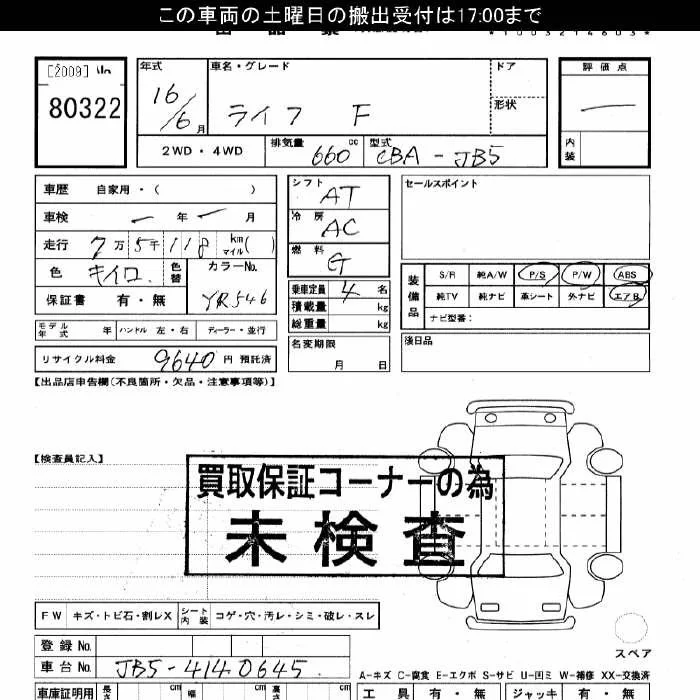 この車両の土曜日の搬出受付は17:00まで
*1003214603*
[2009]
80322
年式
16/6月
車名・グレード
ライフ F
ドア
形状
評価点
内装
2WD・4WD
排気量 660 cc
型式 CBA-JB5
車歴 自家用・( )
車検 年 月
走行 7万5千118 km マイル( )
色 キイロ 色替
カラーNo. YR546
保証書 有・無
シフト AT
冷房 AC
燃料 G
乗車定員 4 名
積載量 kg
総重量 kg
セールスポイント
装備品
S/R 純A/W P/S P/W ABS
純TV 純ナビ 革シート 外ナビ エアB
ナビ型番:
モデル年式 年 ハンドル 左・右 ディーラー・並行
リサイクル料金 9640 円 預託済
名変期限 月 日
後日品
【出品店申告欄(不良箇所・欠品・注意事項等)】
【検査員記入】
買取保証コーナーの為
未検査
FW キズ・トビ石・割レX シート内装 コゲ・穴・汚レ・シミ・破レ・スレ
スペア
登録No.
車台No. JB5-4140645
A-キズ C-腐食 E-エクボ S-サビ U-凹ミ W-補修 XX-交換済
車庫証明用 長さ cm 幅 cm 高さ cm
工具 有・無 ジャッキ 有・無